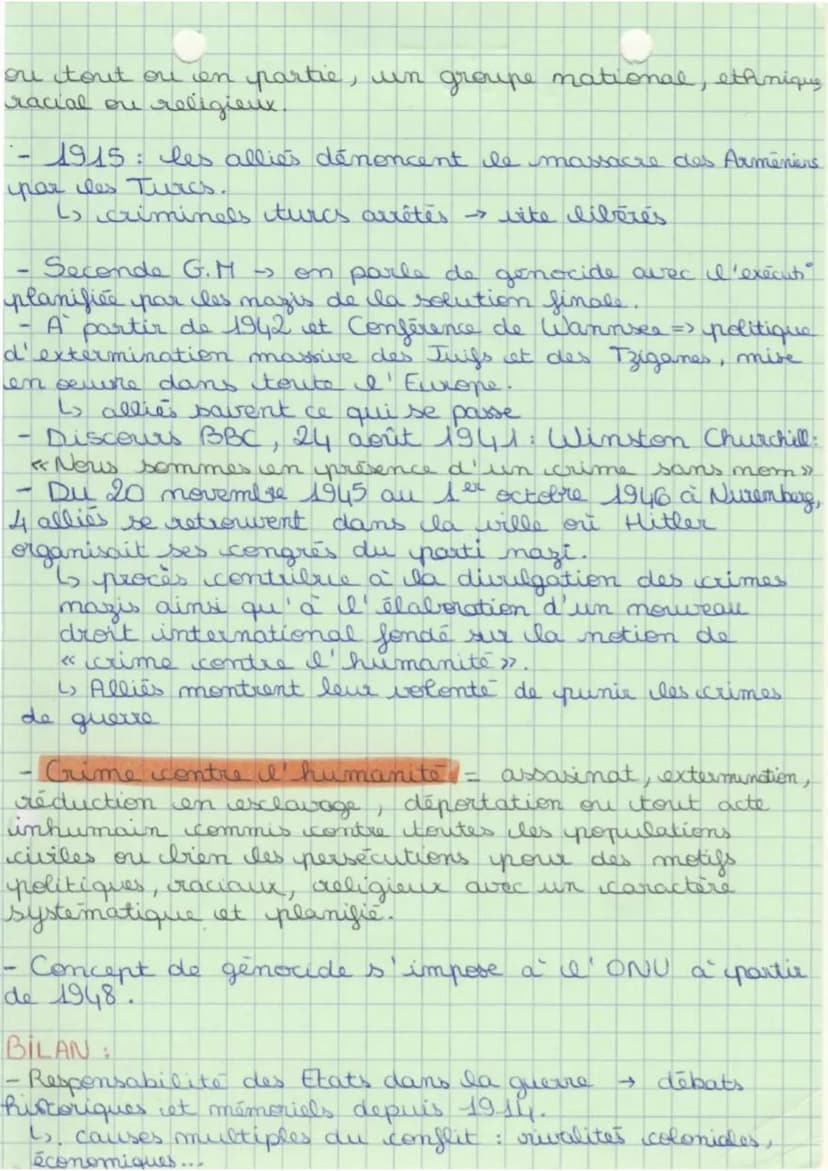 ou tout ou en partie, un groupe national, ethnique
racial ou religieux.
- 1915 : les alliés dénoncent le massacre des Arméniens
par les Turcs.
↳ criminels turcs arrêtés → vite libérés
- Seconde G.M → on parle de génocide avec l'exécut°
planifiée par les nazis de la solution finale.
- A partir de 1942 et Conférence de Wannsee => politique
d'extermination massive des Juifs et des Tziganes, mise
en oeuvre dans toute l'Europe.
↳ alliés savent ce qui se passe
- Discours BBC, 24 août 1941 : Winston Churchill :
« Nous sommes en présence d'un crime sans nom »
- Du 20 novembre 1945 au 1er octobre 1946 à Nuremberg,
4 alliés se retrouvent dans la ville où Hitler
organisait ses congrés du parti nazi.
↳ procès contribue à la divulgation des crimes
nazis ainsi qu'à l'élaboration d'un nouveau
droit international fondé sur la notion de
« crime contre l'humanité ».
↳ Alliés montrent leur volonté de punir les crimes
de guerre
- Crime contre l'humanité = assasinat, extermination,
réduction en esclavage, déportation ou tout acte
inhumain commis contre toutes les populations
civiles ou bien les persécutions pour des motifs
politiques, raciaux, religieux avec un caractère
systématique et planifié.
- Concept de génocide s'impose à l'ONU à partir
de 1948.
BILAN :
- Responsabilité des Etats dans la guerre → débats
historiques et mémoriels depuis 1914.
↳ causes multiples du conflit : rivalités coloniales,
économiques...